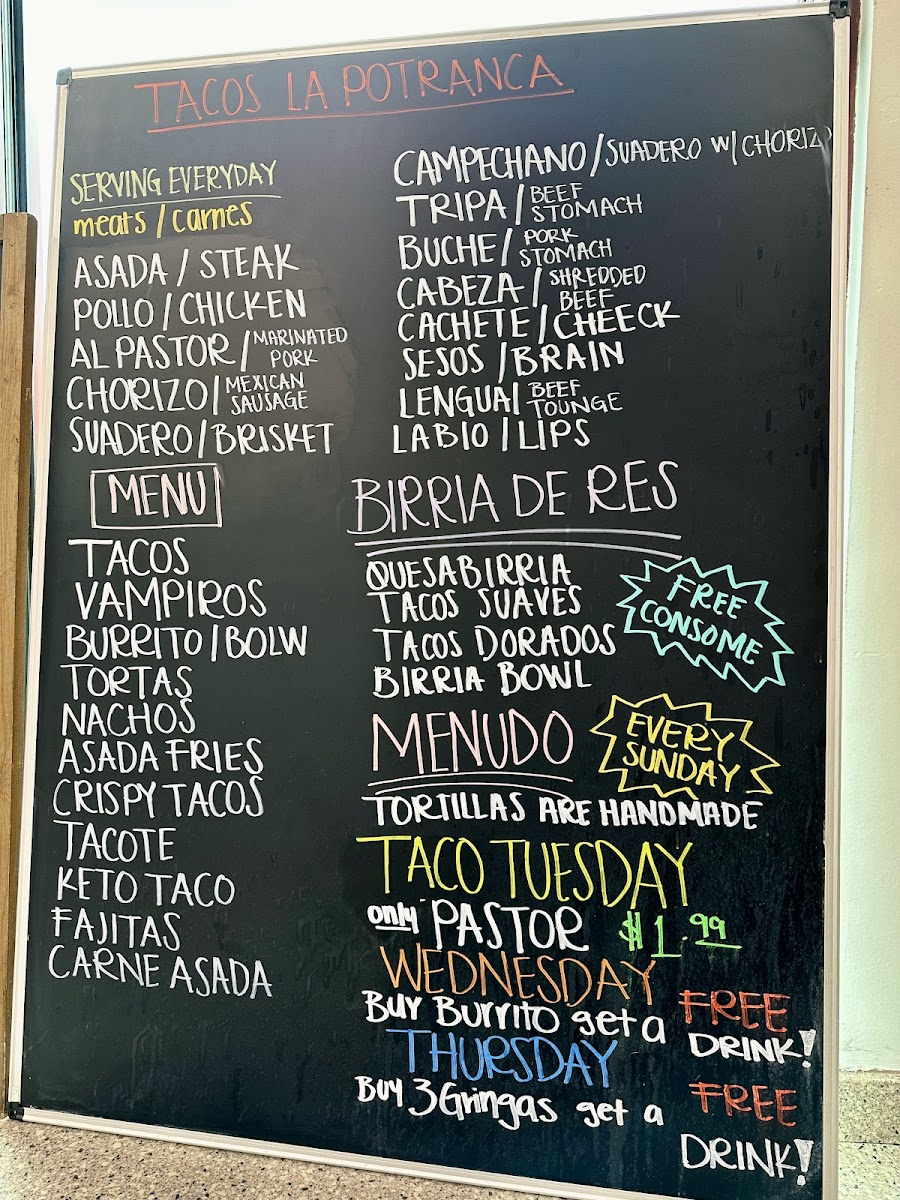 TACOS LA POTRANCA
SERVING EVERYDAY
meats / carnes
ASADA / STEAK
POLLO / CHICKEN
AL PASTOR / MARINATED PORK
CHORIZO / MEXICAN SAUSAGE
SUADERO / BRISKET
CAMPECHANO / SUADERO W/ CHORIZO
TRIPA / BEEF STOMACH
BUCHE / PORK STOMACH
CABEZA / SHREDDED BEEF
CACHETE / CHEECK
SESOS / BRAIN
LENGUA / BEEF TOUNGE
LABIO / LIPS
MENU
TACOS
VAMPIROS
BURRITO / BOLW
TORTAS
NACHOS
ASADA FRIES
CRISPY TACOS
TACOTE
KETO TACO
FAJITAS
CARNE ASADA
BIRRIA DE RES
QUESABIRRIA
TACOS SUAVES
TACOS DORADOS
BIRRIA BOWL
FREE
CONSOME
MENUDO
EVERY
SUNDAY
TORTILLAS ARE HANDMADE
TACO TUESDAY
only PASTOR $1.99
WEDNESDAY
Buy Burrito get a FREE
DRINK!
THURSDAY
Buy 3 Gringas get a FREE
DRINK!